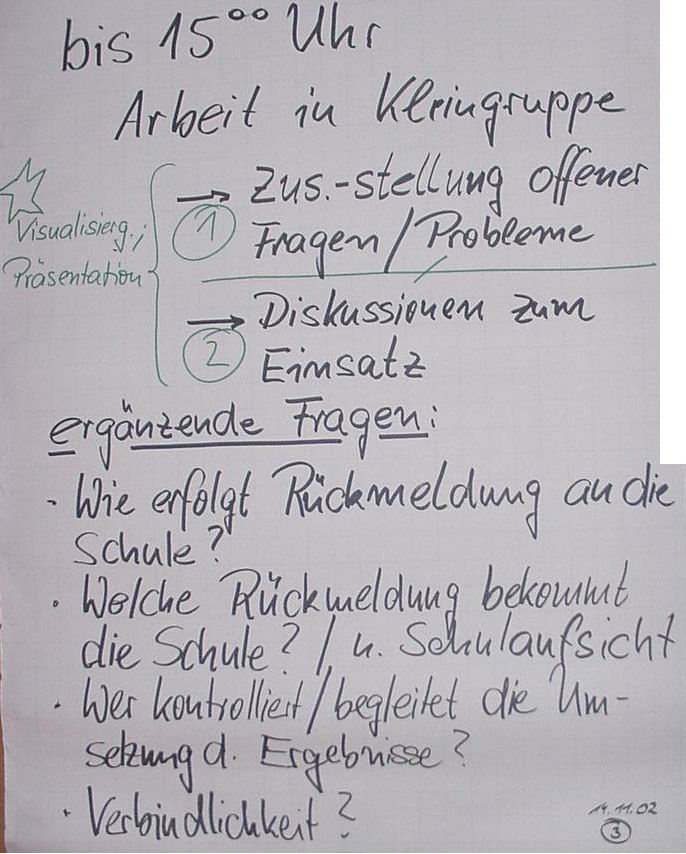 bis 15⁰⁰ Uhr
Arbeit in Kleingruppe
→ Zus.-stellung offener
① Fragen / Probleme
Visualisierg.;
Präsentation
→ Diskussionen zum
② Einsatz
ergänzende Fragen:
- Wie erfolgt Rückmeldung an die
Schule?
· Welche Rückmeldung bekommt
die Schule? / u. Schulaufsicht
· Wer kontrolliert / begleitet die Um-
setzung d. Ergebnisse?
· Verbindlichkeit?
14.11.02
③